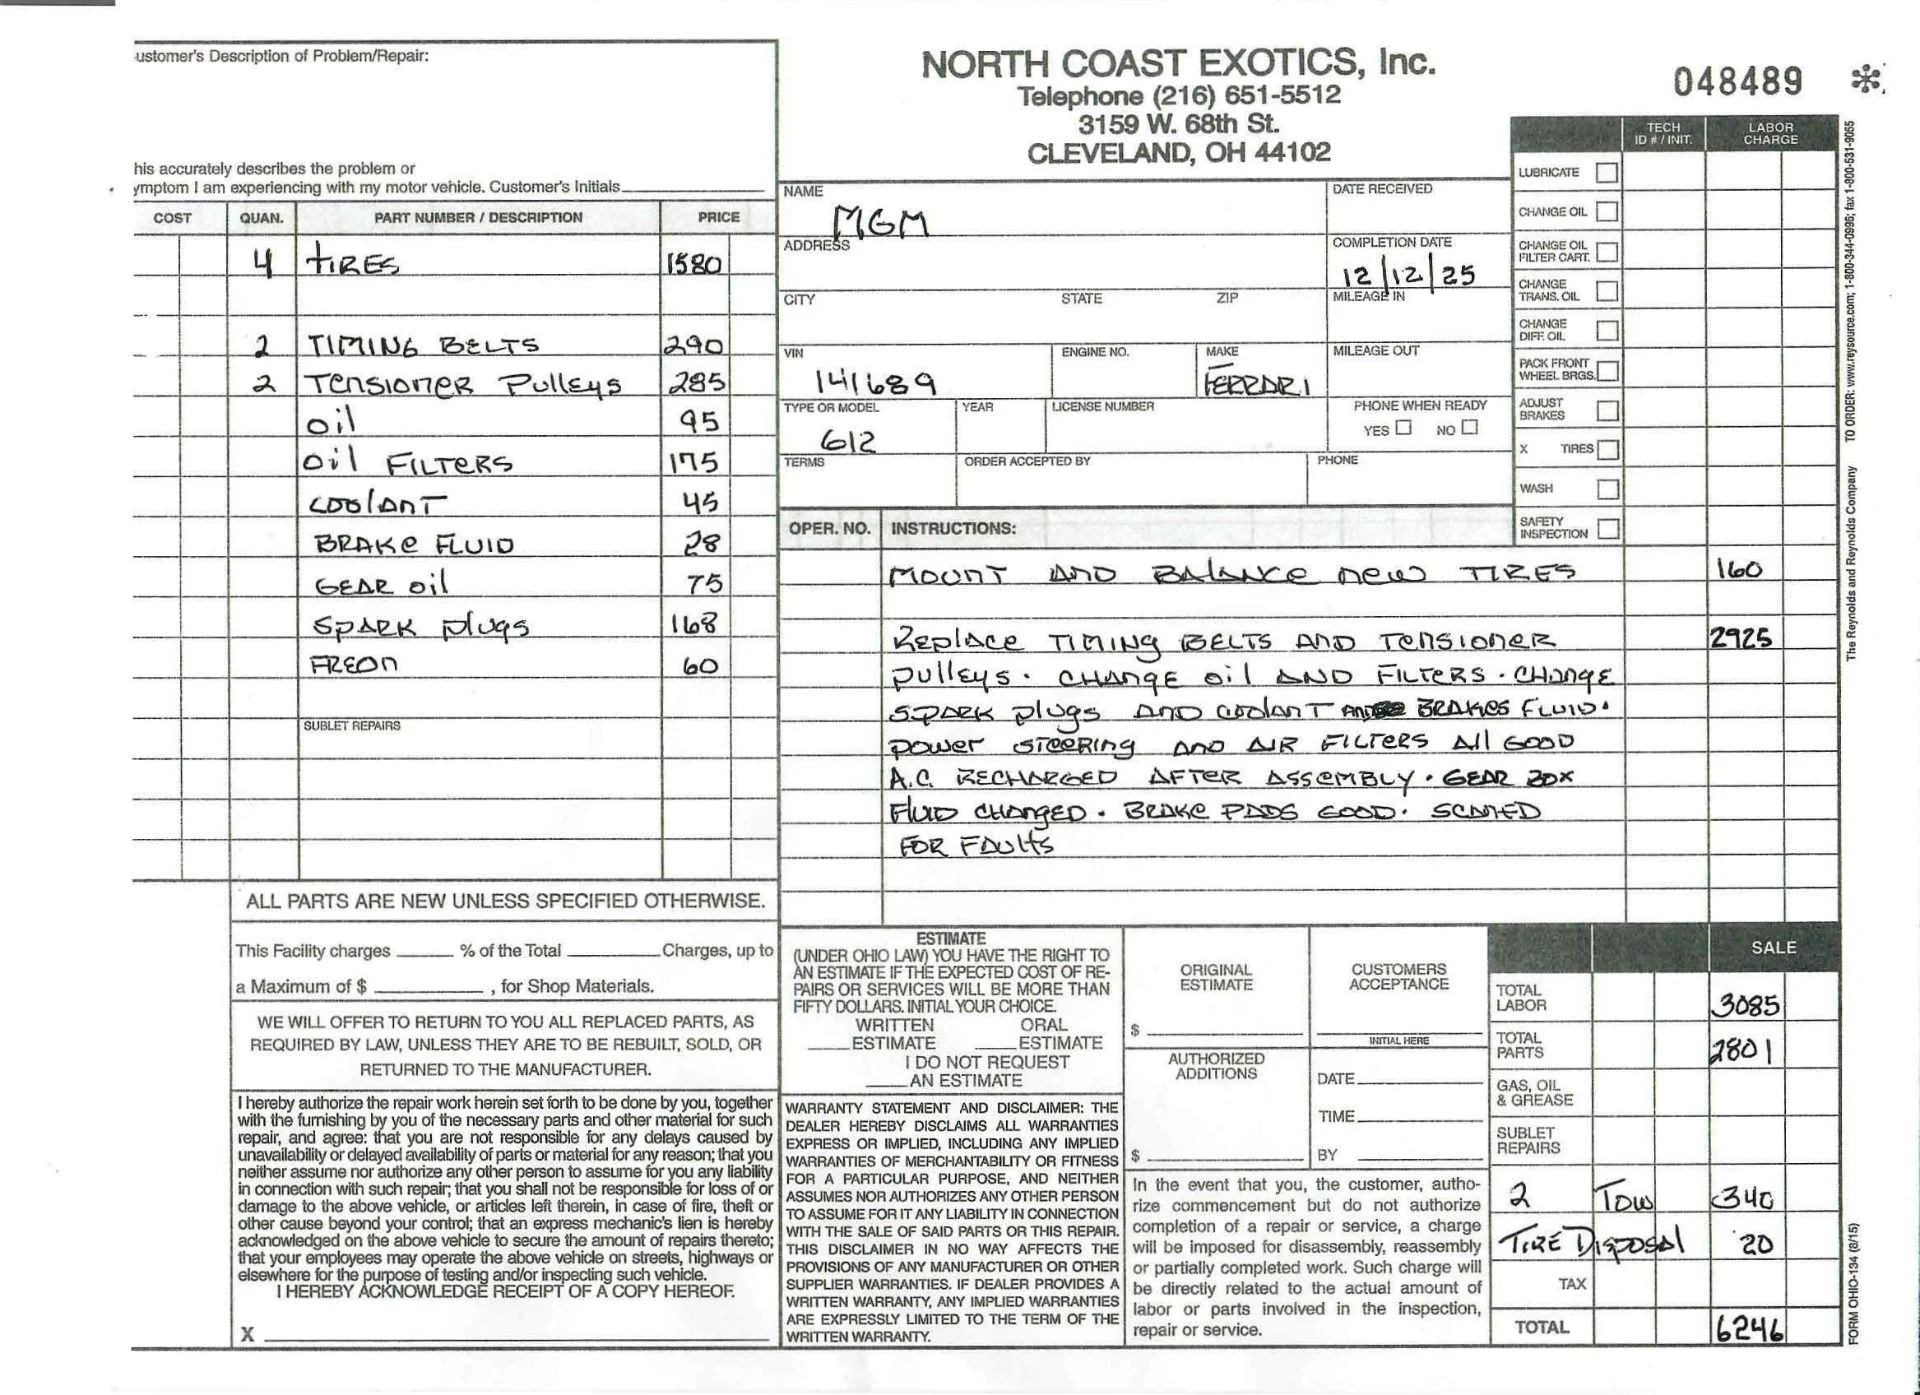 ustomer's Description of Problem/Repair:
his accurately describes the problem or
ymptom I am experiencing with my motor vehicle. Customer's Initials
COST QUAN. PART NUMBER / DESCRIPTION PRICE
4 TIRES 1580
2 TIMING BELTS 290
2 TENSIONER PULLEYS 285
OIL 95
OIL FILTERS 175
COOLANT 45
BRAKE FLUID 28
GEAR OIL 75
SPARK PLUGS 168
FREON 60
SUBLET REPAIRS
ALL PARTS ARE NEW UNLESS SPECIFIED OTHERWISE.
This Facility charges % of the Total Charges, up to
a Maximum of $ , for Shop Materials.
WE WILL OFFER TO RETURN TO YOU ALL REPLACED PARTS, AS
REQUIRED BY LAW, UNLESS THEY ARE TO BE REBUILT, SOLD, OR
RETURNED TO THE MANUFACTURER.
I hereby authorize the repair work herein set forth to be done by you, together
with the furnishing by you of the necessary parts and other material for such
repair, and agree: that you are not responsible for any delays caused by
unavailability or delayed availability of parts or material for any reason; that you
neither assume nor authorize any other person to assume for you any liability
in connection with such repair; that you shall not be responsible for loss of or
damage to the above vehicle, or articles left therein, in case of fire, theft or
other cause beyond your control; that an express mechanic's lien is hereby
acknowledged on the above vehicle to secure the amount of repairs thereto;
that your employees may operate the above vehicle on streets, highways or
elsewhere for the purpose of testing and/or inspecting such vehicle.
I HEREBY ACKNOWLEDGE RECEIPT OF A COPY HEREOF.
X
NORTH COAST EXOTICS, Inc.
Telephone (216) 651-5512
3159 W. 68th St.
CLEVELAND, OH 44102
048489 *
NAME DATE RECEIVED
MGM
ADDRESS COMPLETION DATE
12/12/25
CITY STATE ZIP MILEAGE IN
VIN ENGINE NO. MAKE MILEAGE OUT
141689 FERRARI
TYPE OR MODEL YEAR LICENSE NUMBER PHONE WHEN READY
612 YES NO
TERMS ORDER ACCEPTED BY PHONE
TECH ID # / INIT. LABOR CHARGE
LUBRICATE
CHANGE OIL
CHANGE OIL FILTER CART.
CHANGE TRANS. OIL
CHANGE DIFF. OIL
PACK FRONT WHEEL BRGS.
ADJUST BRAKES
X TIRES
WASH
SAFETY INSPECTION
OPER. NO. INSTRUCTIONS:
MOUNT AND BALANCE NEW TIRES 160
REPLACE TIMING BELTS AND TENSIONER 2925
PULLEYS. CHANGE OIL AND FILTERS. CHANGE
SPARK PLUGS AND COOLANT AND BRAKES FLUID.
POWER STEERING AND AIR FILTERS All GOOD
A.C. RECHARGED AFTER ASSEMBLY. GEAR BOX
FLUID CHANGED. BRAKE PADS GOOD. SCANNED
FOR FAULTS
ESTIMATE
(UNDER OHIO LAW) YOU HAVE THE RIGHT TO
AN ESTIMATE IF THE EXPECTED COST OF RE-
PAIRS OR SERVICES WILL BE MORE THAN
FIFTY DOLLARS. INITIAL YOUR CHOICE.
WRITTEN ORAL
ESTIMATE ESTIMATE
I DO NOT REQUEST
AN ESTIMATE
WARRANTY STATEMENT AND DISCLAIMER: THE
DEALER HEREBY DISCLAIMS ALL WARRANTIES
EXPRESS OR IMPLIED, INCLUDING ANY IMPLIED
WARRANTIES OF MERCHANTABILITY OR FITNESS
FOR A PARTICULAR PURPOSE, AND NEITHER
ASSUMES NOR AUTHORIZES ANY OTHER PERSON
TO ASSUME FOR IT ANY LIABILITY IN CONNECTION
WITH THE SALE OF SAID PARTS OR THIS REPAIR.
THIS DISCLAIMER IN NO WAY AFFECTS THE
PROVISIONS OF ANY MANUFACTURER OR OTHER
SUPPLIER WARRANTIES. IF DEALER PROVIDES A
WRITTEN WARRANTY, ANY IMPLIED WARRANTIES
ARE EXPRESSLY LIMITED TO THE TERM OF THE
WRITTEN WARRANTY.
ORIGINAL
ESTIMATE
$
AUTHORIZED
ADDITIONS
$
CUSTOMERS
ACCEPTANCE
INITIAL HERE
DATE
TIME
BY
In the event that you, the customer, autho-
rize commencement but do not authorize
completion of a repair or service, a charge
will be imposed for disassembly, reassembly
or partially completed work. Such charge will
be directly related to the actual amount of
labor or parts involved in the inspection,
repair or service.
SALE
TOTAL LABOR 3085
TOTAL PARTS 2801
GAS, OIL & GREASE
SUBLET REPAIRS
2 TOW 340
TIRE DISPOSAL 20
TAX
TOTAL 6246
The Reynolds and Reynolds Company TO ORDER: www.reysource.com; 1-800-344-0996; fax 1-800-531-9055
FORM OHIO-134 (8/15)